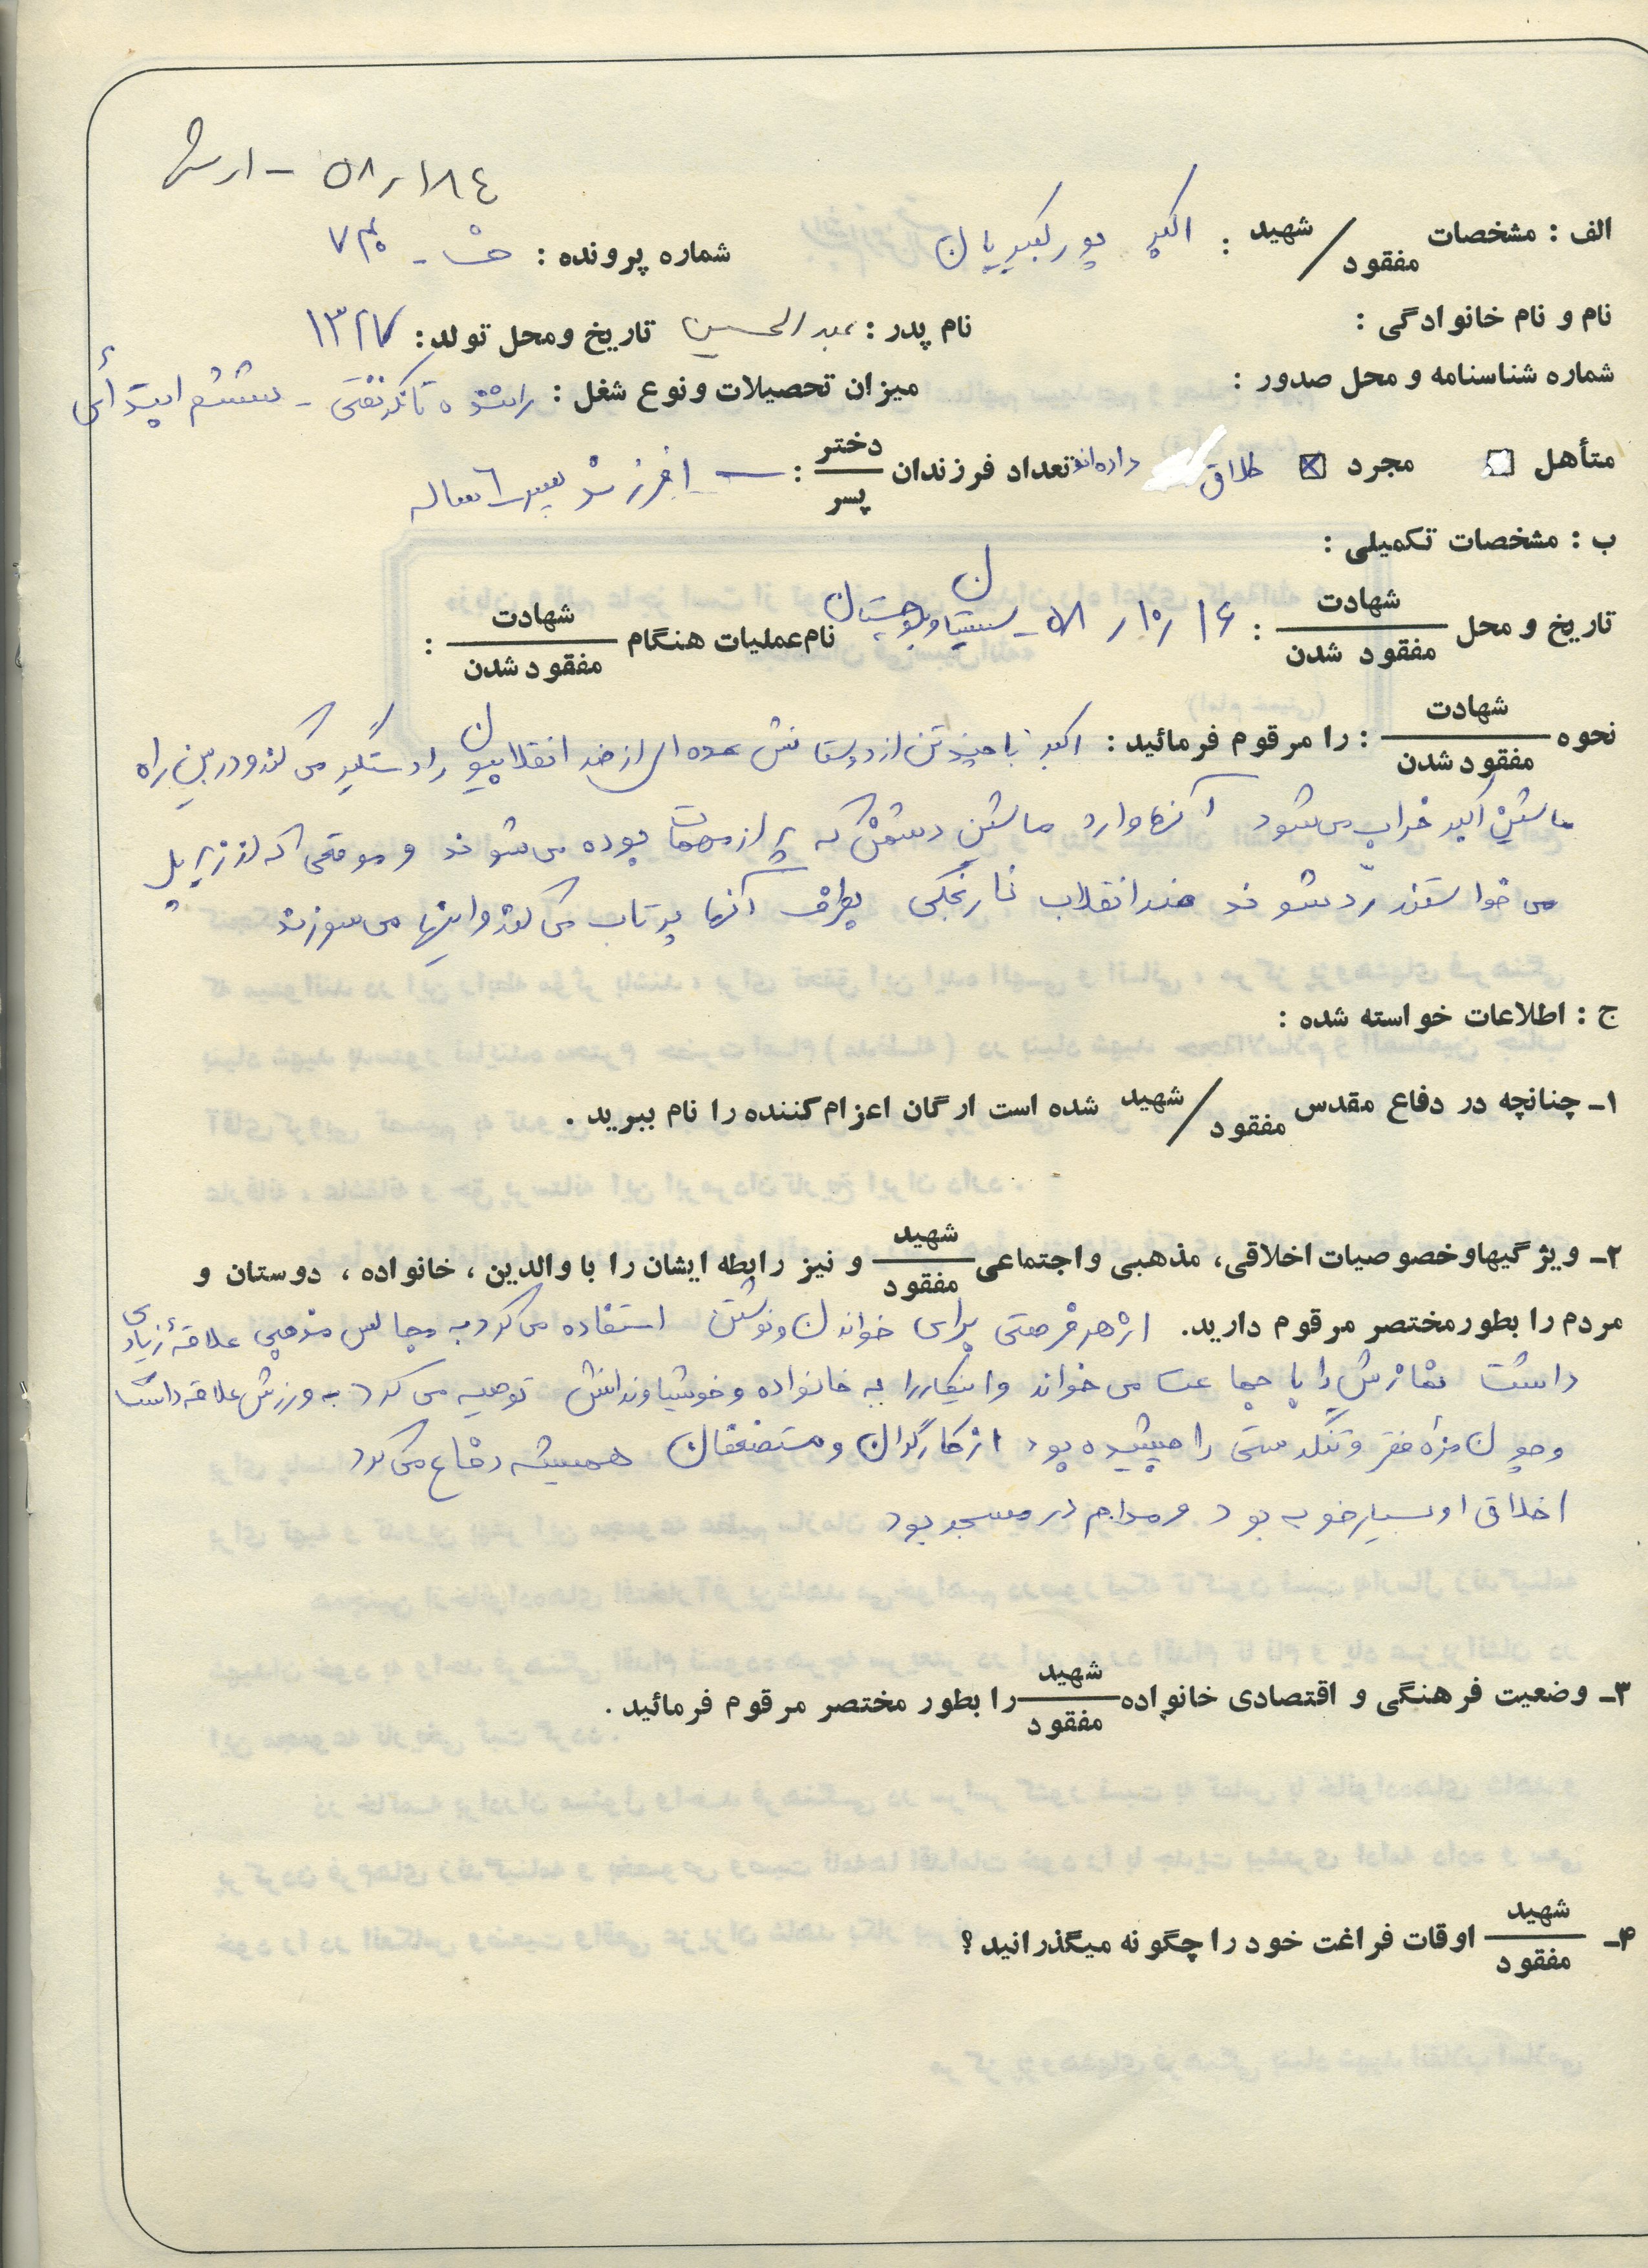 ۵۸٫۱۸۴ - ارتش
الف : مشخصات شهید / مفقود : اکبر پورکبیریان
شماره پرونده : خ - ۷۳
نام و نام خانوادگی : نام پدر : عبدالحسین تاریخ ومحل تولد : ۱۳۲۷
شماره شناسنامه و محل صدور : میزان تحصیلات ونوع شغل : راننده تانکر نفتی - ششم ابتدائی
متأهل مجرد ☒ طلاق داده‌اند تعداد فرزندان دختر / پسر : — ۱ فرزند پسر ۶ ساله
ب : مشخصات تکمیلی :
تاریخ و محل شهادت / مفقود شدن : ۱۶ ر ۱۰ ر ۵۸ - سیستان وبلوچستان نام عملیات هنگام شهادت / مفقود شدن :
نحوه شهادت / مفقود شدن : را مرقوم فرمائید : اکبر با چند تن از دوستانش عده ای از ضد انقلابیون را دستگیر می کند و در بین راه
ماشین اکبر خراب می‌شود آنها وارد ماشین دشمن که پر از مهمات بوده می‌شوند و موقعی که از زیر پل
می خواستند ردّ شوند ضد انقلاب نارنجکی بطرف آنها پرتاب می کند و اینها می سوزند
ج : اطلاعات خواسته شده :
۱ـ چنانچه در دفاع مقدس شهید / مفقود شده است ارگان اعزام کننده را نام ببرید .
۲ـ ویژگیهاوخصوصیات اخلاقی، مذهبی واجتماعی شهید / مفقود و نیز رابطه ایشان را با والدین ، خانواده ، دوستان و
مردم را بطور مختصر مرقوم دارید. از هر فرصتی برای خواندن و نوشتن استفاده می کرد به مجالس مذهبی علاقهٔ زیادی
داشت نمازش را با جماعت می خواند و اینکار را به خانواده و خوشیاوندانش توصیه می کرد به ورزش علاقه داشت
و چون مزه فقر و تنگدستی را چشیده بود از کارگران و مستضعفان همیشه دفاع می کرد
اخلاق او بسیار خوب بود و مداوم در مسجد بود
۳ـ وضعیت فرهنگی و اقتصادی خانواده شهید / مفقود را بطور مختصر مرقوم فرمائید .
۴ـ شهید / مفقود اوقات فراغت خود را چگونه میگذرانید ؟